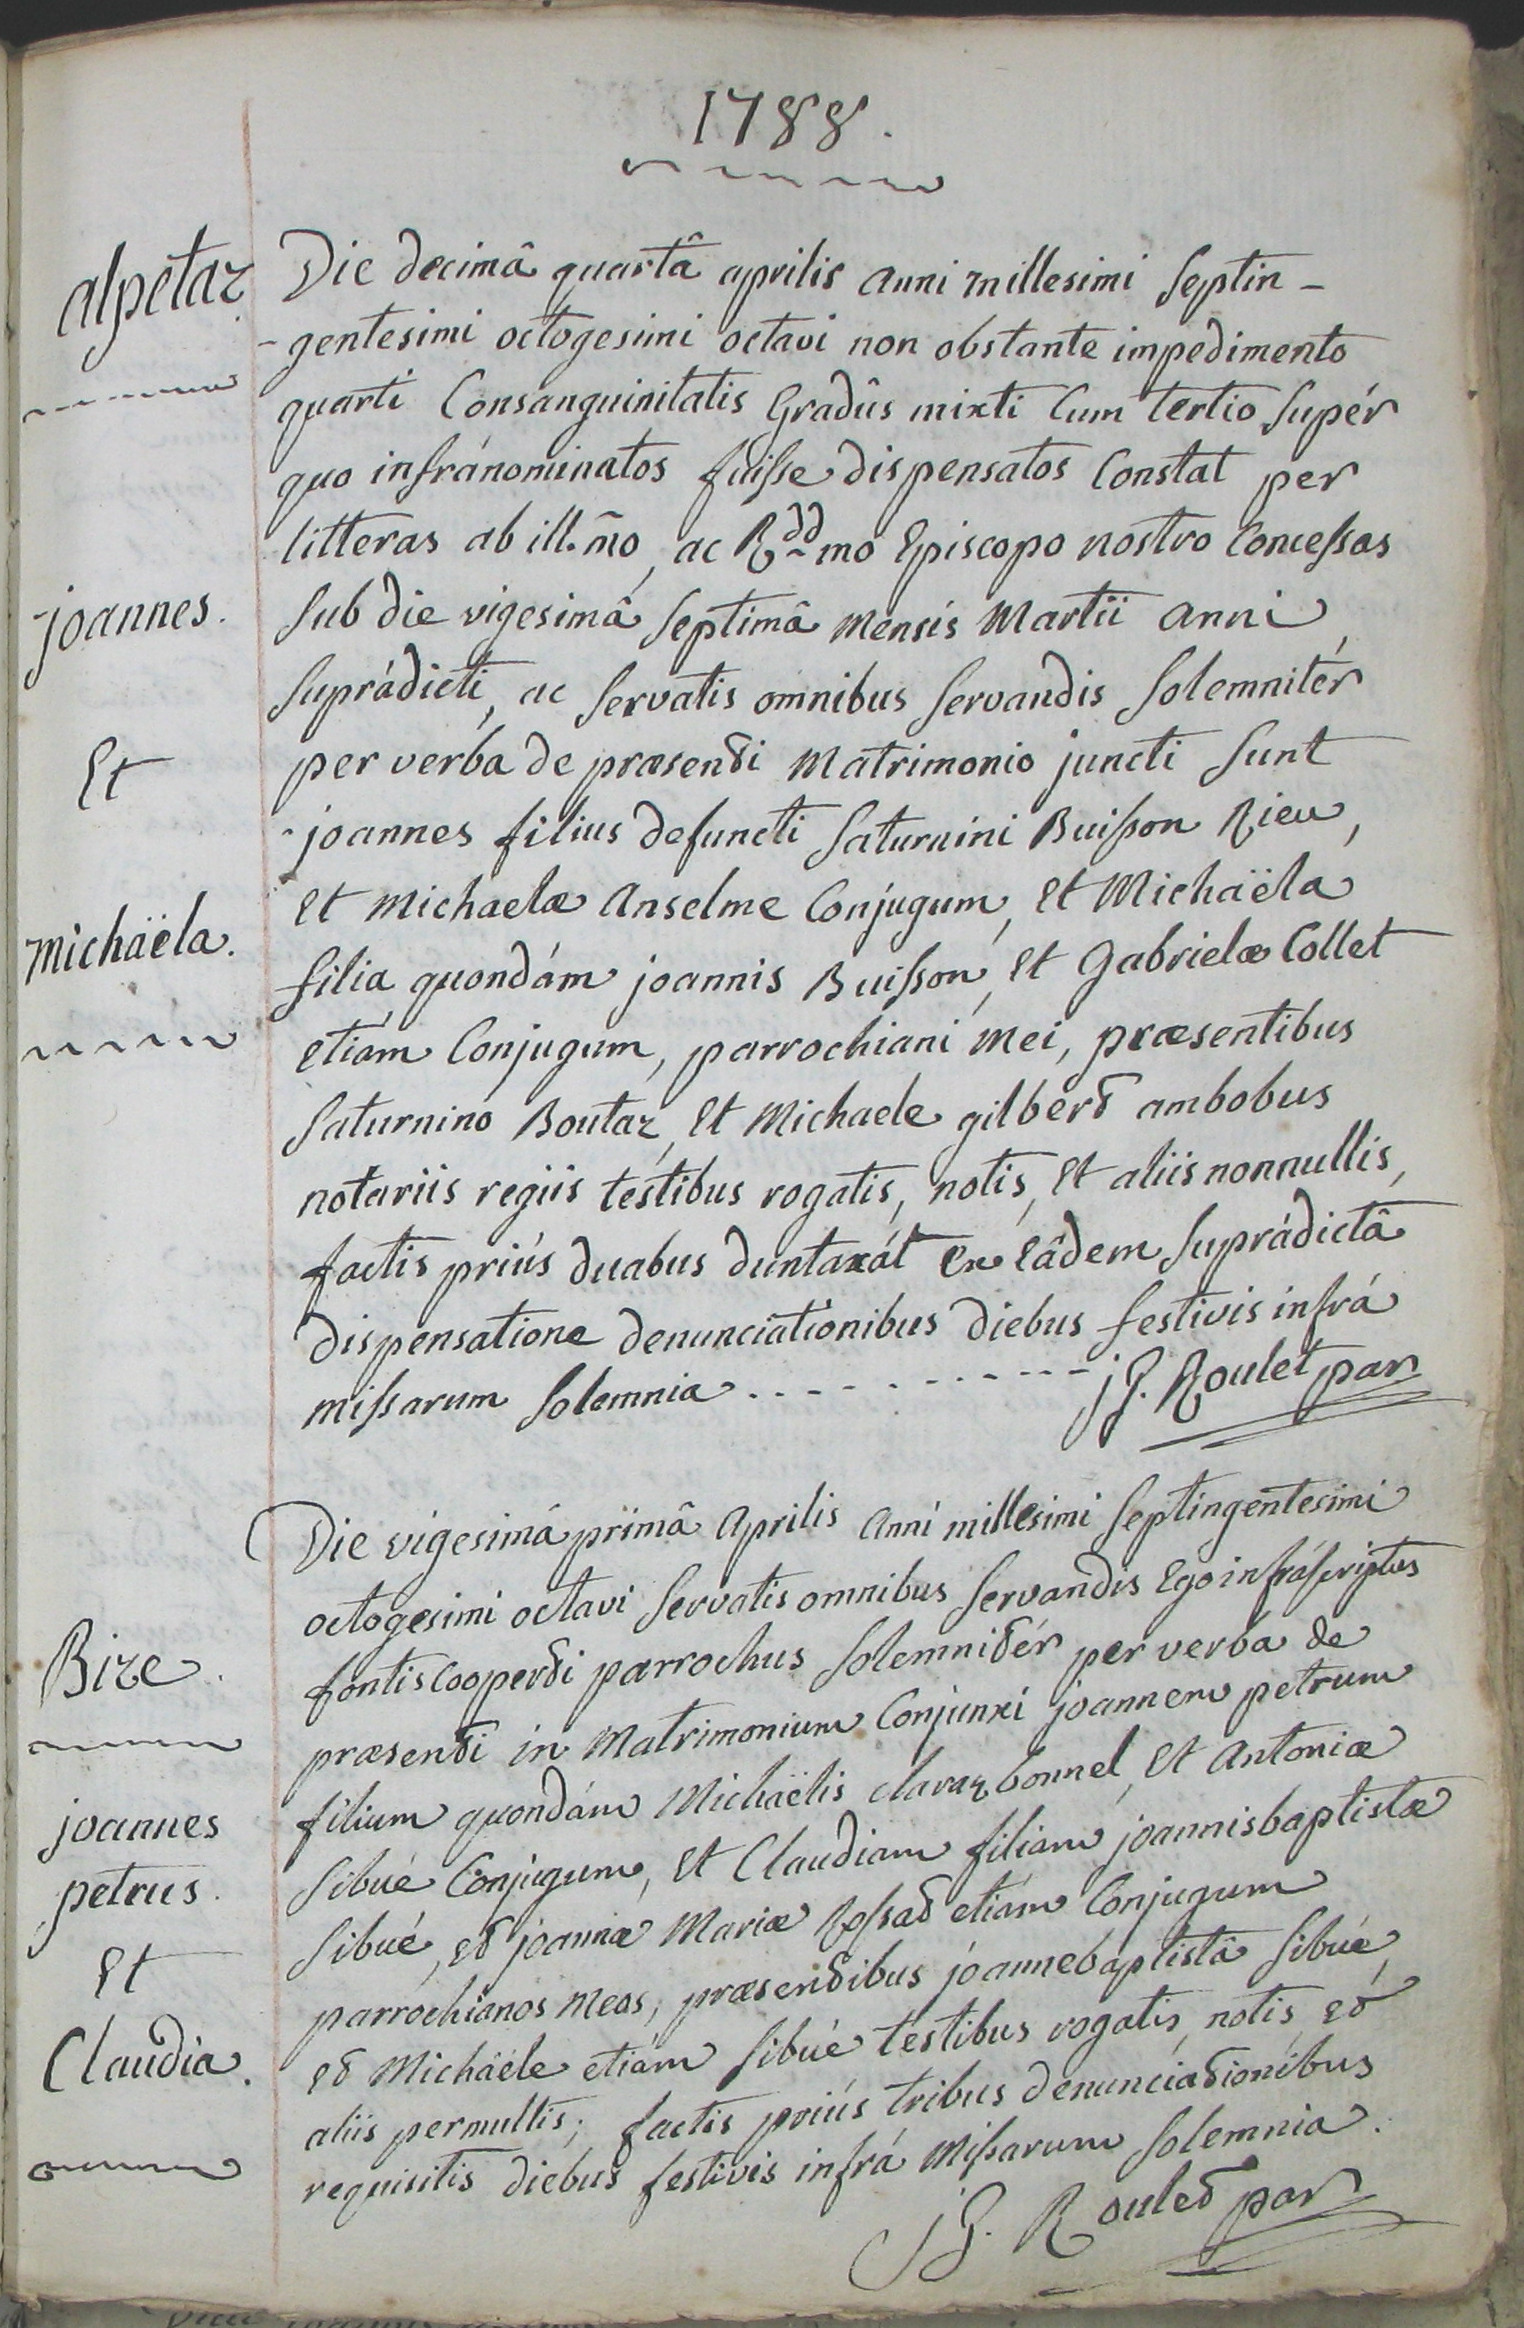 1788.
alpetaz
Die decimâ quartâ aprilis anni millesimi septin-
-gentesimi octogesimi octavi non obstante impedimento
quarti Consanguinitatis Gradûs mixti Cum tertio supér
quo infránominatos fuisse dispensatos Constat per
litteras ab ill.mo, ac Rddmo Episcopo nostro Concessas
joannes.
sub die vigesimâ septimâ mensis Martii anni
suprádicti, ac servatis omnibus servandis solemnitér
Et
per verba de præsenti Matrimonio juncti sunt
joannes filius defuncti saturnini Buisson Rieu,
Et Michaelæ Anselme Conjugum, Et Michaëla
michaëla.
filia quondám joannis Buisson, Et Gabrielæ Collet
etiám Conjugum, parrochiani mei, præsentibus
saturnino Boutaz, Et Michaele gilbert ambobus
notariis regiis testibus rogatis, notis, Et aliis nonnullis,
factis priús duabus duntaxát Ex Eâdem suprádictâ
dispensatione denunciationibus diebus festivis infrá
missarum solemnia - - - - - - - - - - j G. Roulet par
Die vigesimâ primâ Aprilis anni millesimi septingentesimi
octogesimi octavi servatis omnibus servandis Ego infráscriptus
Bize.
fontiscooperti parrochus solemnitér per verba de
præsenti in Matrimonium Conjunxi joannem petrum
filium quondám Michaëlis claraz bonnel, Et Antoniæ
joannes
petrus.
sibué Conjugum, Et Claudiam filiam joannisbaptistæ
sibué, et joannæ Mariæ Rossat etiám Conjugum
Et
parrochianos meos, præsentibus joannebaptistâ sibué,
Claudia.
et Michäele etiám sibué testibus rogatis, notis, et
aliis permultis; factis priús tribus denunciationibus
requisitis diebus festivis infrá Missarum solemnia.
j G. Roulet par